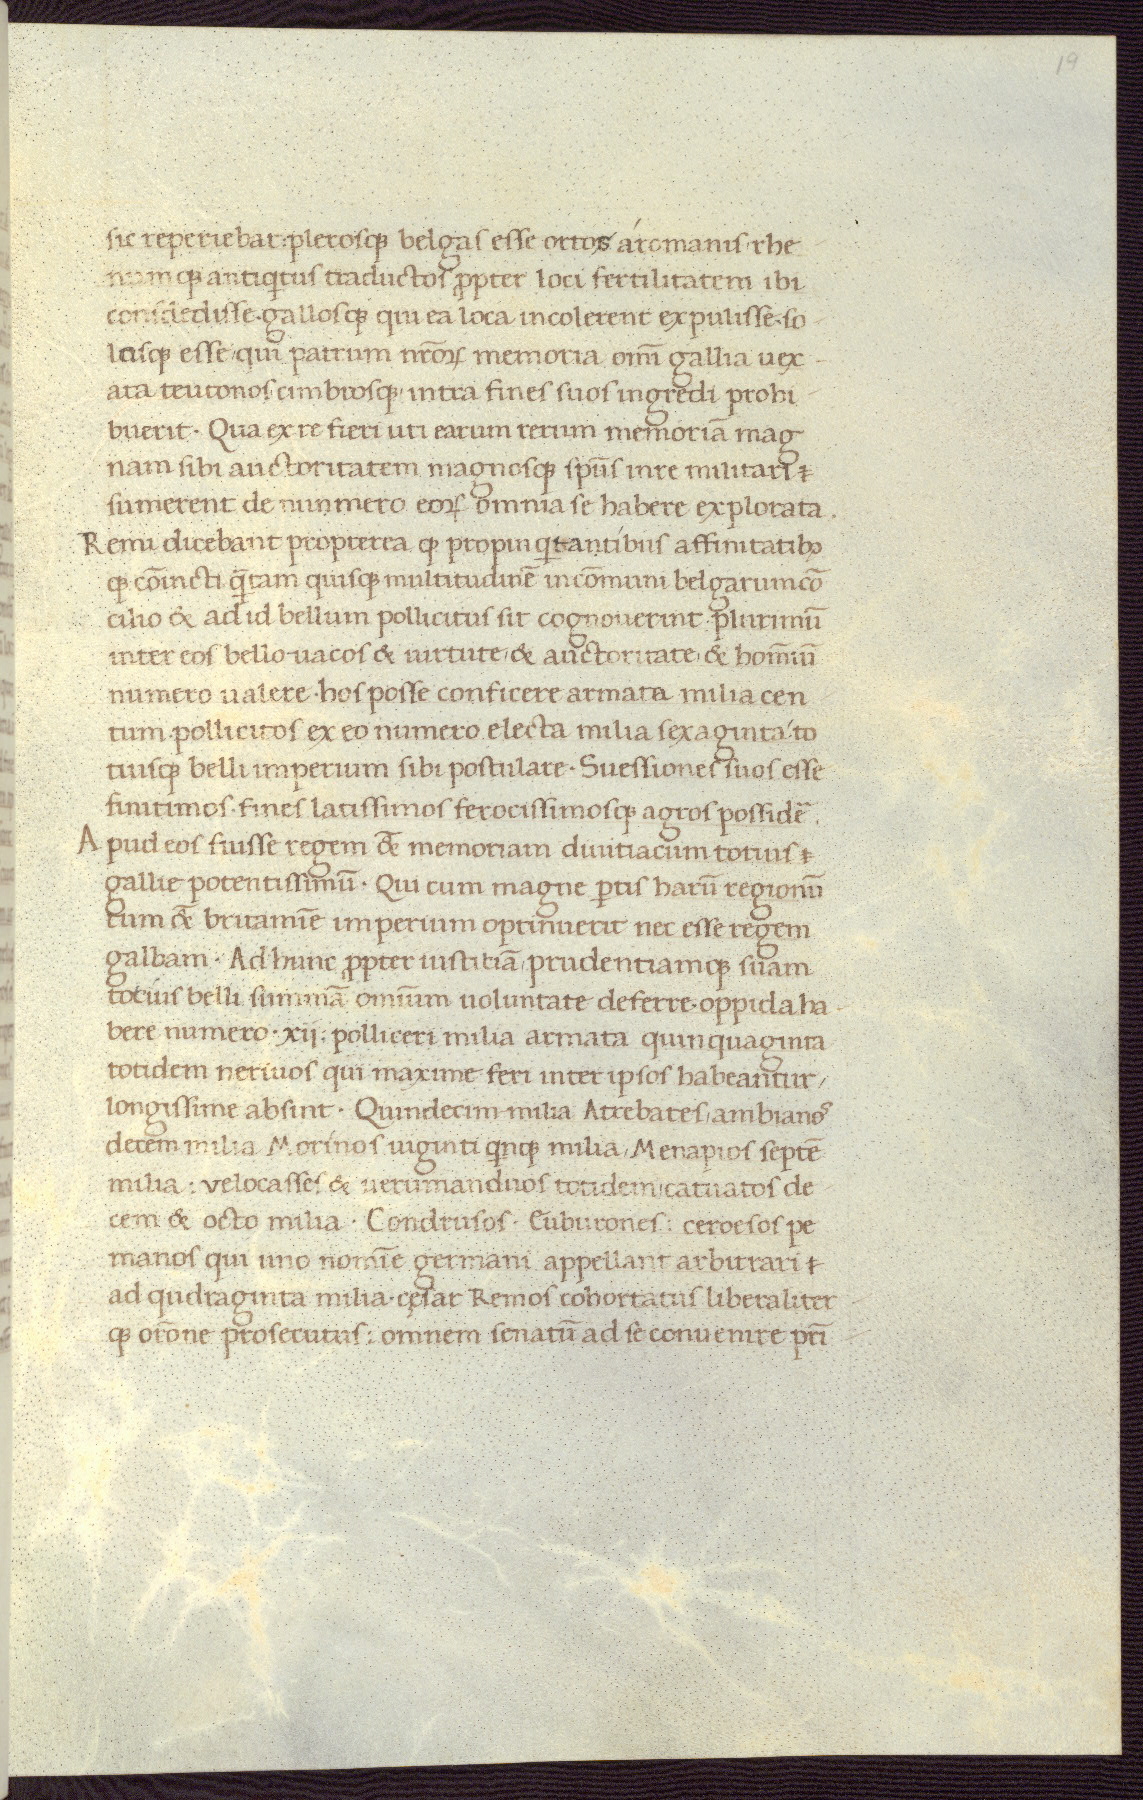 19
sic reperiebat: plerosq; belgas esse ortos áromanis rhe
numq; antiq̇tus traductos ꝓpter loci fertilitatem ibi
consedisse· gallosq; qui ea loca incolerent expulisse· so
losq; esse qui patrum nr̄oꝝ memoria om̄i gallia uex
ata teutonos cimbrosq; intra fines suos ingredi prohi
buerit· Qua ex re fieri uti earum rerum memoriā mag
nam sibi auctoritatem magnosq; spūs in re militari ⁊
sumerent de nummero eoꝝ omnia se habere explorata.
Remi dicebant propterea q; propinq̇tantibus affinitatibꝫ
q; cōiuncti q̄ntam quisq; multitudinē in cōmuni belgarum cō
cilio & ad id bellum pollicitus sit cognouerint· plurimū
inter eos bellouacos & uirtute & auctoritate & homīuū
numero ualere· hos posse conficere armata milia cen
tum· pollicitos ex eo numero electa milia sexaginta· to
tiusq; belli imperium sibi postulare· Suessiones suos esse
finitimos· fines latissimos ferocissimosq; agros possidē.
Apud eos fuisse regem &̄ memoriam diuitiacum totius ⁊
gallie potentissimū· Qui cum magne ꝑtis harū regionū
tum &̄ britannie imperium optinuerit nec esse regem
galbam· Ad hunc ꝓpter iustitiā prudentiamq; suam
totius belli summā omīum uoluntate deferre· oppida ha
bere numero· xij: polliceri milia armata quinquaginta
totidem neruios qui maxime feri inter ipsos habeantur,
longissime absint· Quindecim milia Atrebates, ambianos
decem milia Morinos uiginti q̇nq; milia, Menapios septē
milia: velocasses & uerumanduos totidem, catuatos de
cem & octo milia· Condrusos· Euburones: ceroesos pe
manos qui uno nomīe germani appellant arbitrari ⁊
ad qudraginta milia· cęsar Remos cohortatus liberaliter
q; or̄one prosecutus: omnem senatū ad se conuenire pr̄i